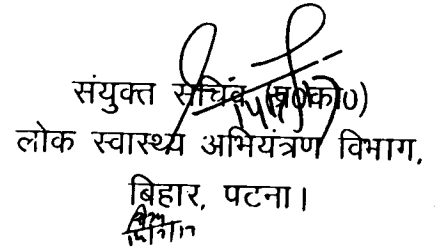 संयुक्त सचिव (प्र०को०)
लोक स्वास्थ्य अभियंत्रण विभाग,
बिहार, पटना।